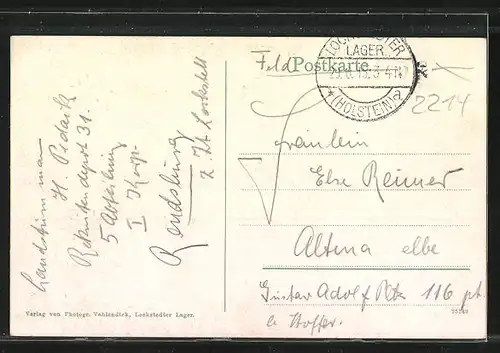 Feld Postkarte
LOCKSTEDTER
LAGER
(HOLSTEIN)
2214
Landsturmmann
H.
Rekrutendepot 31.
5 Abteilung
I Korp.
Rendsburg
z. Zt. Lockstedt
Fräulein
Else Reimer
Altona elbe
Gustav Adolf 116 pt.
Verlag von Photogr. Vahlendick, Lockstedter Lager.